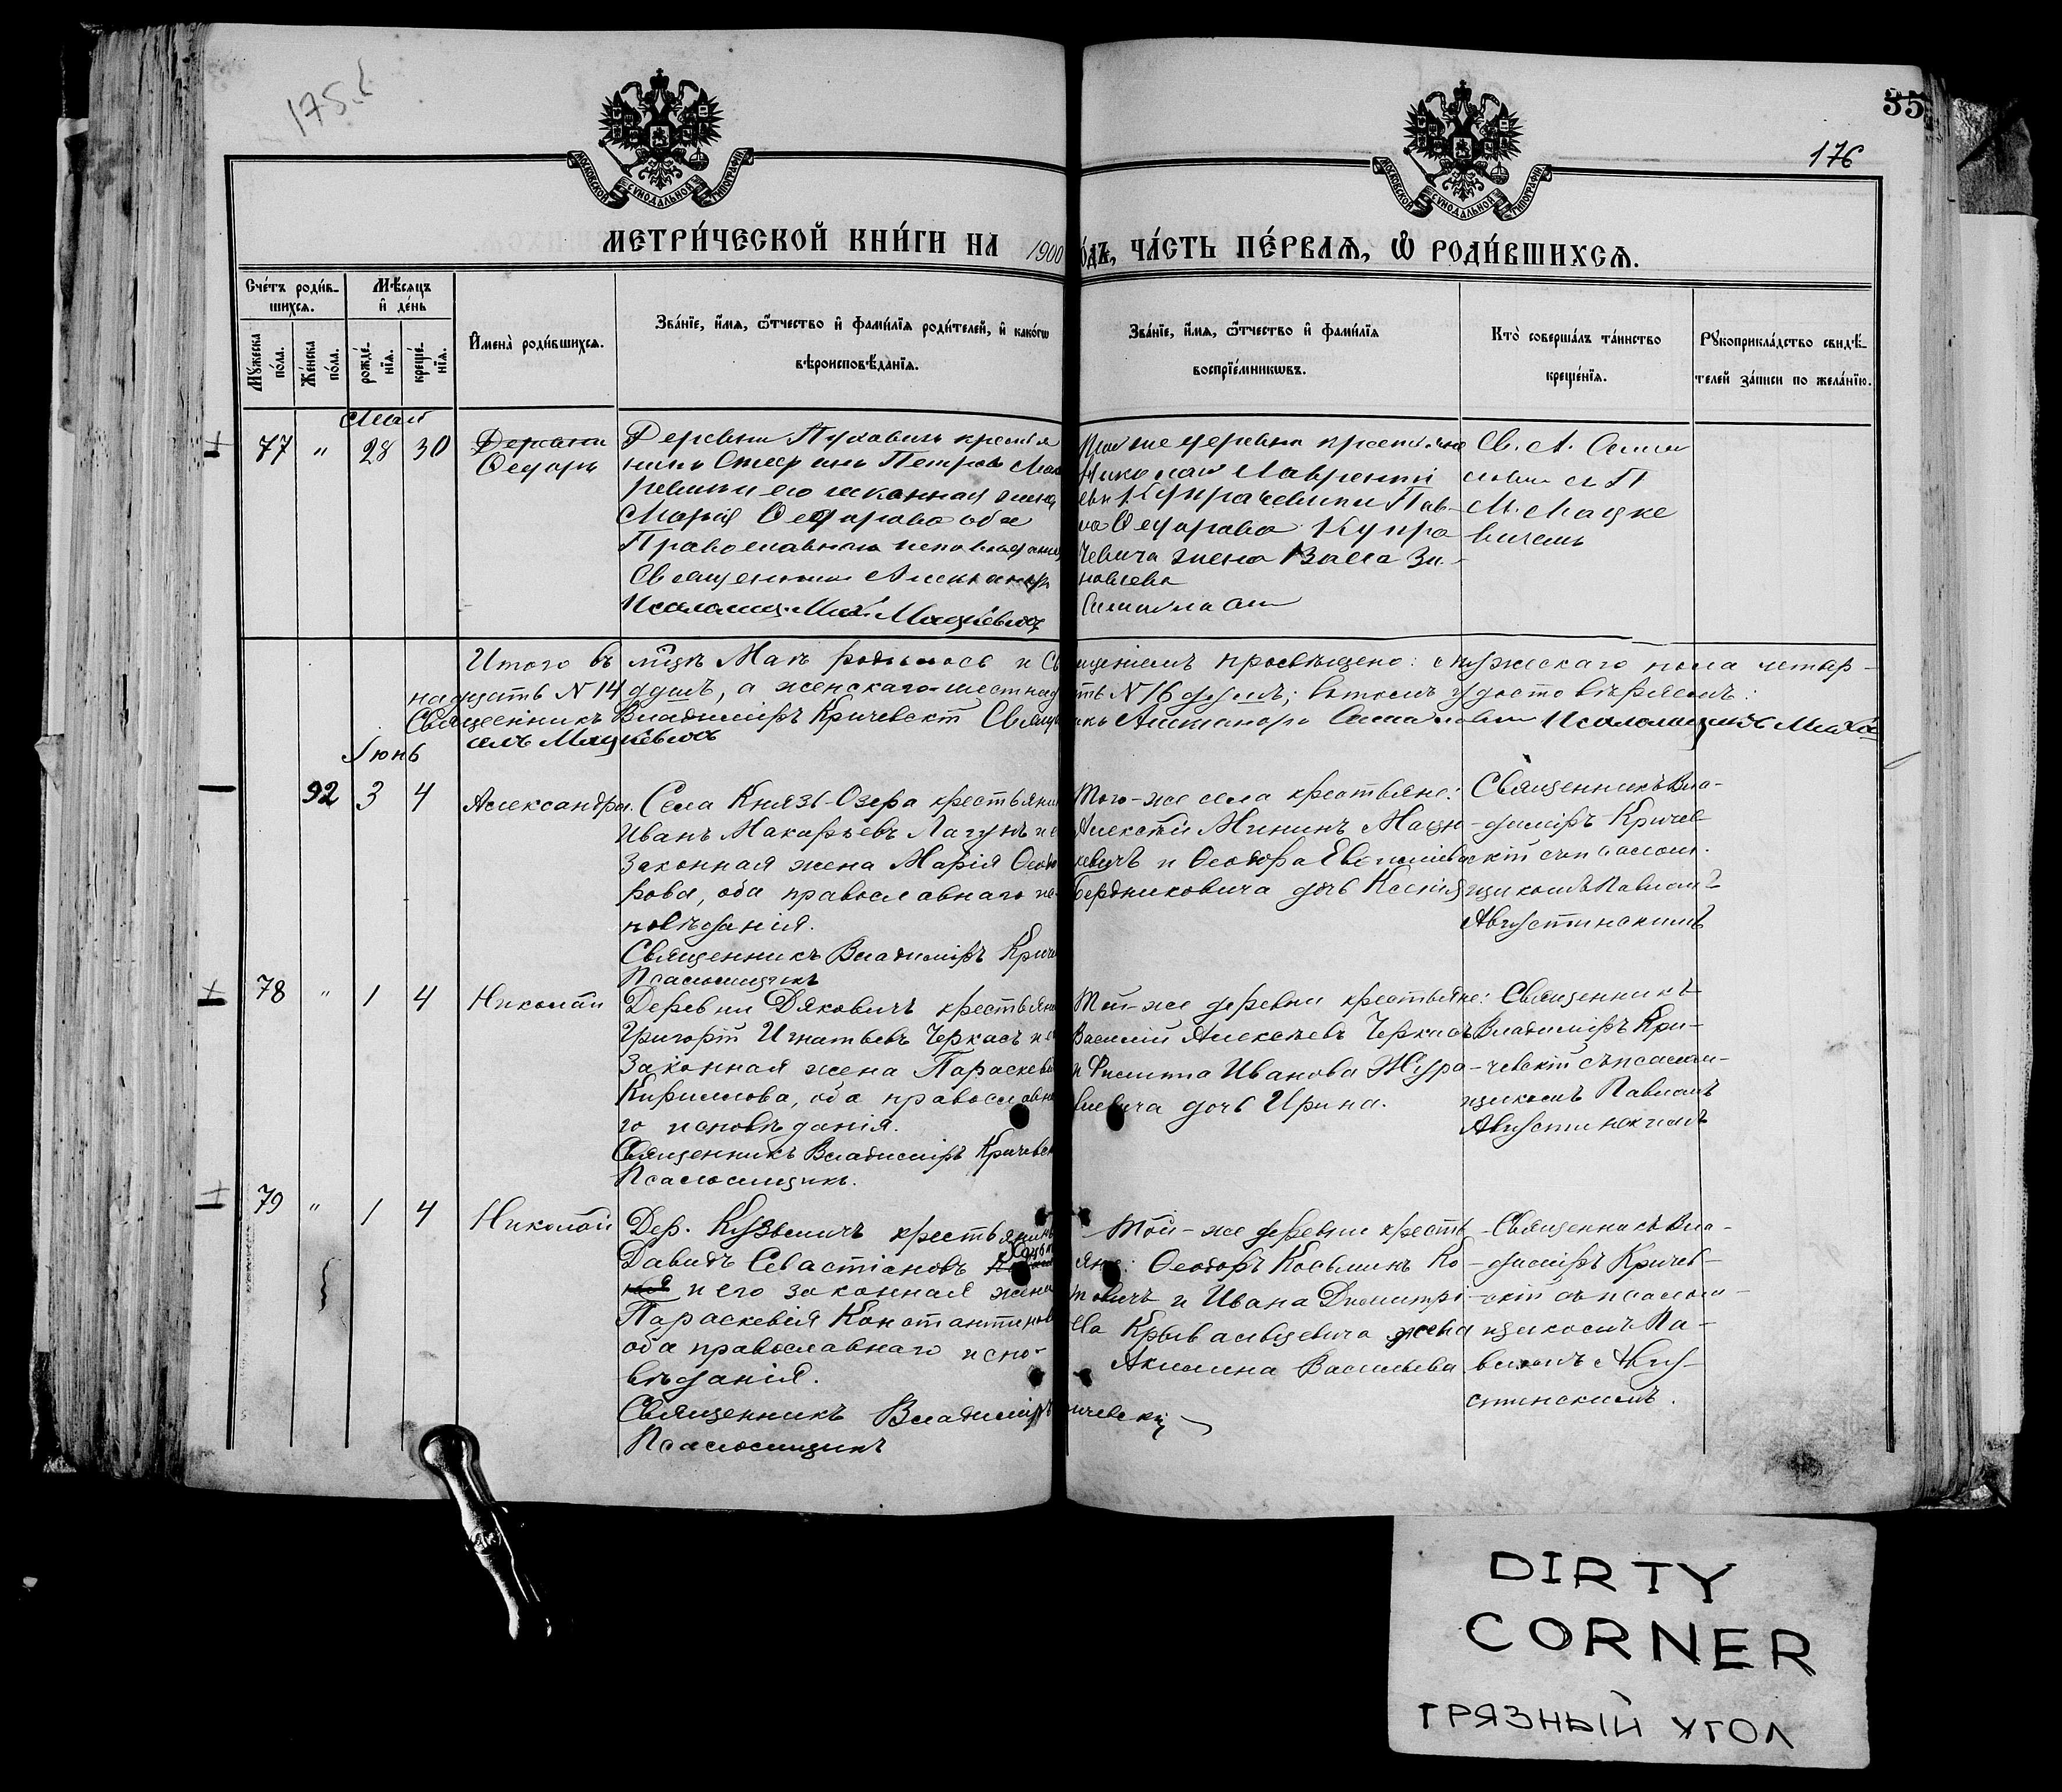 175.
35
176
МОСКОВСКОЙ СѴНОДАЛЬНОЙ ТИПОГРАФІИ
МОСКОВСКОЙ СѴНОДАЛЬНОЙ ТИПОГРАФІИ
МЕТРИ́ЧЕСКОЙ КНИ́ГИ НА 1900
О́ДЪ, ЧА́СТЬ ПЕ́РВАѦ, Ѽ РОДИ́ВШИХСѦ.
Сче́тъ роди́в-
шихсѧ.
Мѣсѧцъ
и҆ де́нь
Мꙋ́жеска
по́ла.
Же́нска
по́ла.
рожде́-
нїѧ.
креще́-
нїѧ.
И҆мена̀ роди́вшихсѧ.
Зва́нїе, и҆́мѧ, ѻ҆́тчество и҆ фами́лїѧ роди́телей, и҆ како́гѡ
вѣроисповѣ́данїѧ.
Зва́нїе, и҆́мѧ, ѻ҆́тчество и҆ фами́лїѧ
воспрїе́мникѡвъ.
Кто̀ соверша́лъ та́инство
креще́нїѧ.
Рꙋкоприкла́дство свидѣ́-
телей за́писи по жела́нїю.
Май
77 " 28 30
Ѳедоръ
Деревни Пуховичъ крестья
нинъ Петровъ
его законная жена
Марія Ѳедорова оба
Православнаго исповеданія
Священникъ Александръ
Псаломщ. Мих. Мацкевичъ
Той же деревни крестьяне
Николай Лавренті
евъ Купрачевичъ и Пав-
ла Ѳедорова Купра
чевича жена Васса Зи-
новіева
Св. А.
съ П
М. Мацке
вичемъ
Итого въ м-цѣ Маѣ родилось и Св
ященіемъ просвѣщено: мужескаго пола четыр-
надцать N 14 душъ, а женскаго-шестнад
ть N 16 душъ; въ томъ удостовѣряемъ:
Священникъ Владиміръ Кричевскій Священ
икъ Александръ Псаломщикъ Миха
илъ Мацкевичъ
Іюнь
92 3 4
Александра.
Села Князь-Озера крестьянин
Иванъ Макарьевъ Лагунъ и е
законная жена Марія Ѳеодо
рова, оба православнаго ис-
повѣданія.
Священникъ Владиміръ Криче
Псаломщикъ
Того-же села крестьяне:
Алексѣй Мининъ Мацу-
кевичъ и Ѳеодора Евѳиміева
Бердниковича дочь Ксенія
Священникъ Вла-
диміръ Кричев
скій съ псалом-
щикомъ Павломъ
Августинскимъ
78 " 1 4
Николай
Деревни Дяковичъ крестьяни
Григорій Игнатьевъ Черкасъ и ег
законная жена Параскева
Кириллова, оба православна
го исповѣданія.
Священникъ Владиміръ Кричевск
Псаломщикъ.
Той-же деревни крестьяне:
Василій Алексѣевъ Черкасъ
и Филиппа Иванова Жура-
влевича дочь Ирина.
Священникъ
Владиміръ Кри-
чевскій съ псалом-
щикомъ Павломъ
Августинскимъ
79 " 1 4
Николай
Дер. Кузьмичъ крестьянинъ
Давидъ Севастіановъ
и его законная жена
Параскевія Константинов
оба православнаго испо-
вѣданія.
Священникъ Владиміръ
ичевскій
Псаломщикъ
Той-же деревни кресть
яне: Ѳеодоръ Косьминъ Ко
товичъ и Ивана Димитрі
ева Крывальцевича жена
Акилина Васильева
Священникъ Вла-
диміръ Кричев-
скій съ псалом-
щикомъ Па-
вломъ Авгу-
стинскимъ.
DIRTY
CORNER
ГРЯЗНЫЙ УГОЛ